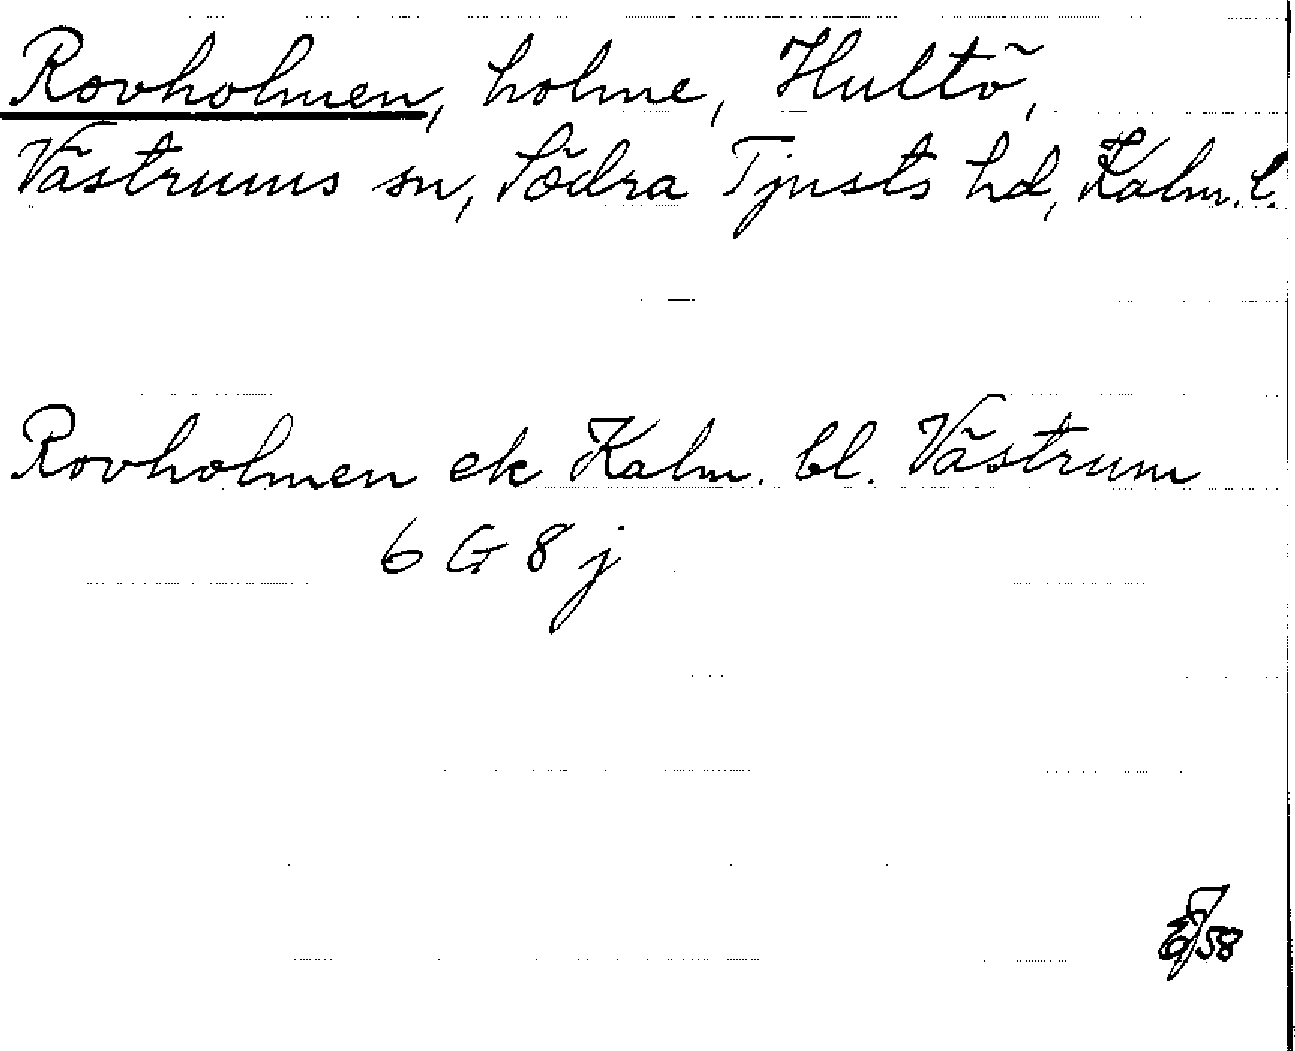 Rovholmen, holme, Hultö,
Västrums sn, Södra Tjusts hd, Kalm. l.
Rovholmen ek Kalm. bl. Västrum
6 G 8 j
58